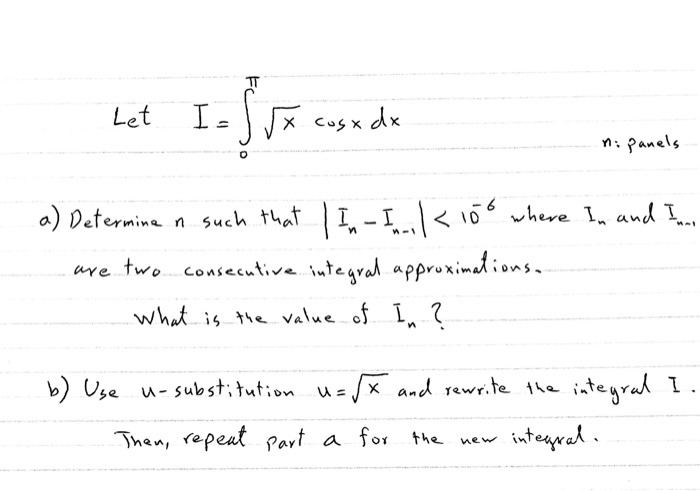 Let I = ∫₀^π √x cosx dx
n: panels
a) Determine n such that |Iₙ - Iₙ₋₁| < 10⁻⁶ where Iₙ and Iₙ₋₁
are two consecutive integral approximations.
What is the value of Iₙ ?
b) Use u-substitution u = √x and rewrite the integral I.
Then, repeat part a for the new integral.